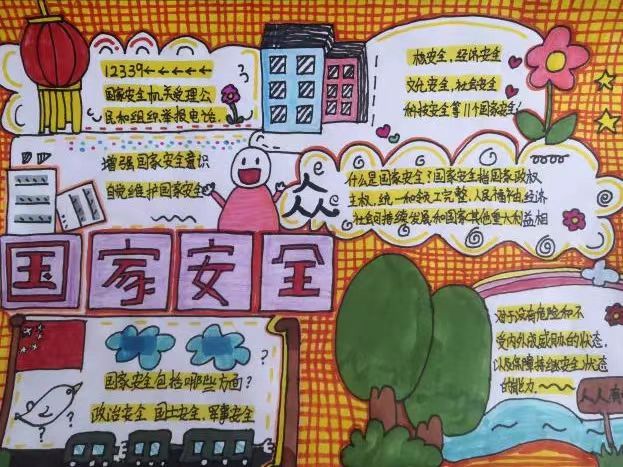 12339
国家安全机关受理公
民和组织举报电话.
核安全,经济安全
文化安全,社会安全
科技安全等11个国家安全!
增强国家安全意识
自觉维护国家安全
人
众
什么是国家安全?国家安全指国家政权
主权,统一和领土完整,人民福祉,经济
社会可持续发展和国家其他重大利益相
国家安全
对于没有危险和不
受内外部威胁的状态,
以及保障持续安全状态
的能力.
国家安全包括哪些方面?
政治安全 国土安全,军事安全
人人有